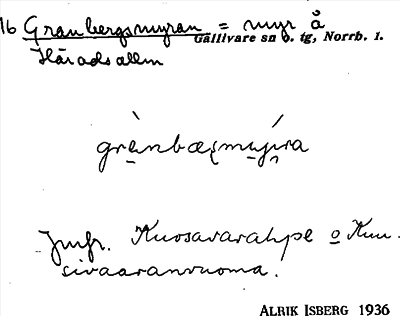 16 Granbergsmyran = myr å
Gällivare sn o. tg, Norrb. l.
Häradsallm
Jmfr. Kuosavarahpe o Kuu-
sivaaranvuoma.
ALRIK ISBERG 1936